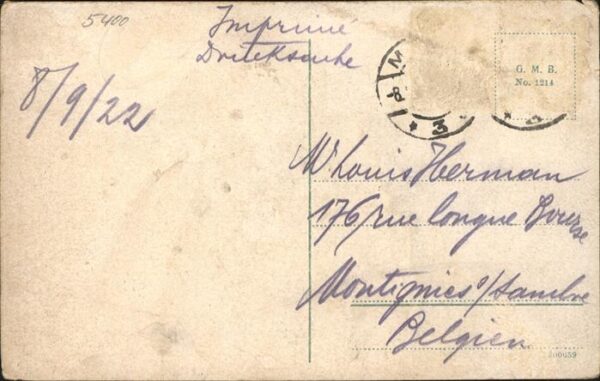 5400
Imprimé
Drucksache
8/9/22
G. M. B.
No. 1214
Mr Louis Herman
176 rue longue Bourse
Montignies s/Sambre
Belgien